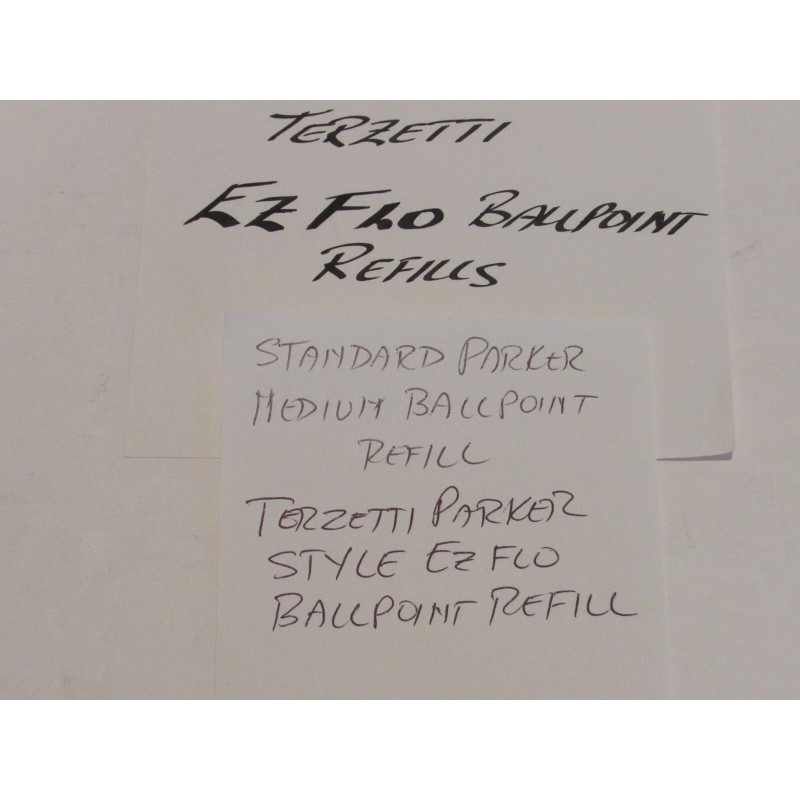 TERZETTI
EZ FLO BALLPOINT
REFILLS
STANDARD PARKER
MEDIUM BALLPOINT
REFILL
TERZETTI PARKER
STYLE EZ FLO
BALLPOINT REFILL